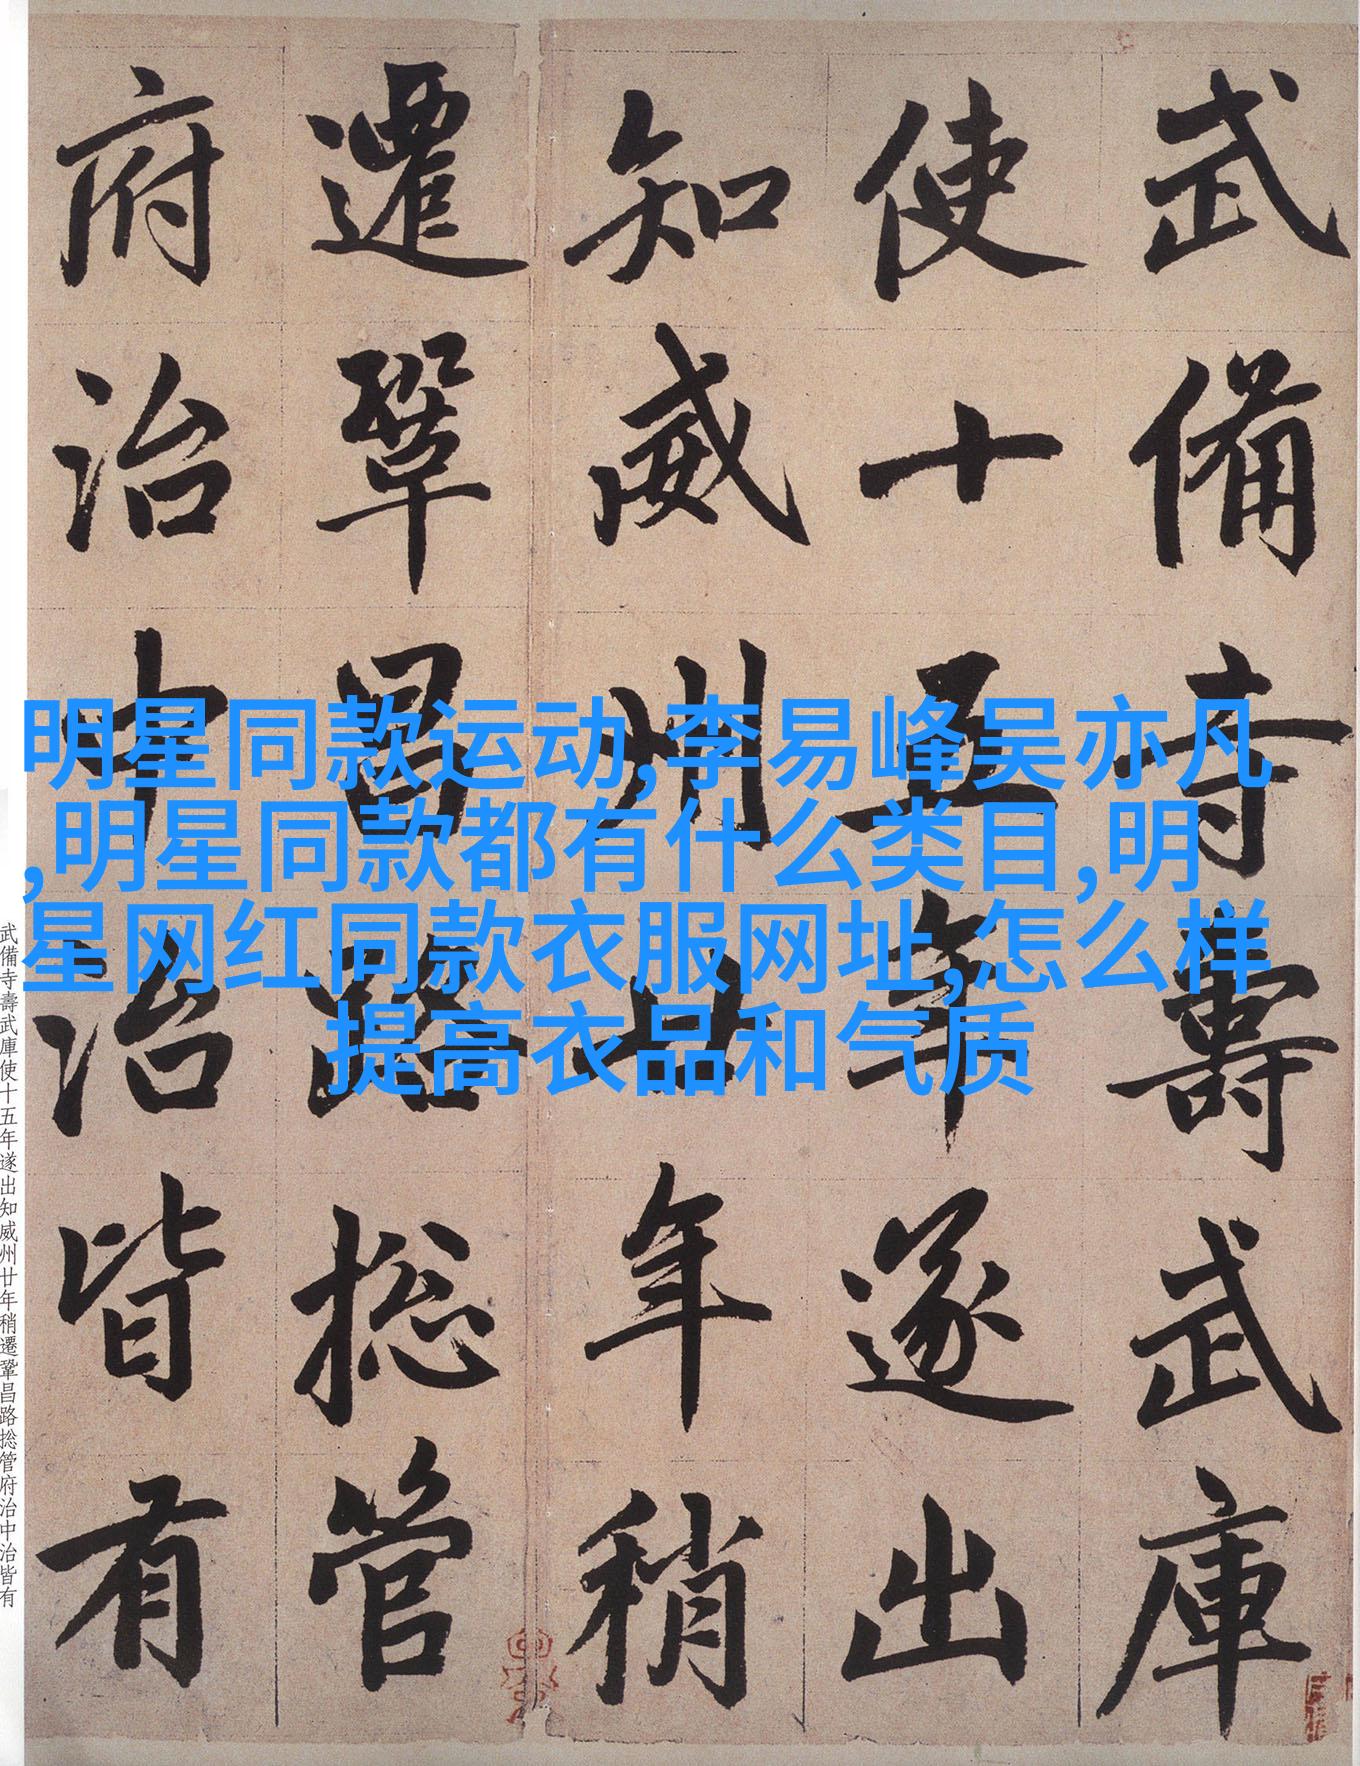 武備寺壽武庫
使十五年遂出
知威州廿年稍
遷鞏昌路捴管
府治中治皆有
明星同款运动,李易峰吴亦凡
,明星同款都有什么类目,明
星网红同款衣服网址,怎么样
提高衣品和气质
武備寺壽武庫使十五年遂出知威州廿年稍遷鞏昌路捴管府治中治皆有